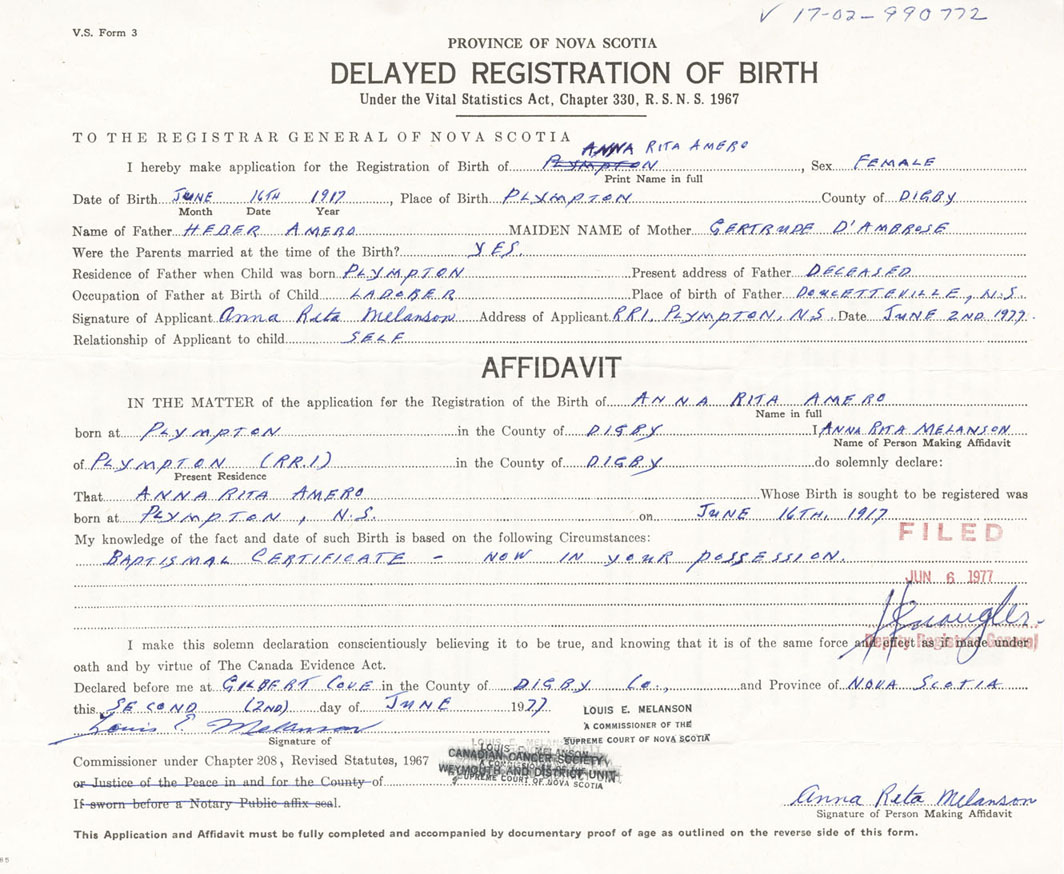 V.S. Form 3
√ 17-02-990772
PROVINCE OF NOVA SCOTIA
DELAYED REGISTRATION OF BIRTH
Under the Vital Statistics Act, Chapter 330, R.S.N.S. 1967
TO THE REGISTRAR GENERAL OF NOVA SCOTIA
ANNA RITA AMERO
I hereby make application for the Registration of Birth of PLYMPTON, Sex FEMALE
Print Name in full
Date of Birth JUNE 16TH 1917, Place of Birth PLYMPTON County of DIGBY
Month Date Year
Name of Father HEBER AMERO MAIDEN NAME of Mother GERTRUDE D'AMBROSE
Were the Parents married at the time of the Birth? YES.
Residence of Father when Child was born PLYMPTON Present address of Father DECEASED
Occupation of Father at Birth of Child LABORER Place of birth of Father DOUCETTEVILLE, N.S.
Signature of Applicant Anna Rita Melanson Address of Applicant RR1, PLYMPTON, N.S. Date JUNE 2ND 1977.
Relationship of Applicant to child SELF
AFFIDAVIT
IN THE MATTER of the application for the Registration of the Birth of ANNA RITA AMERO
Name in full
born at PLYMPTON in the County of DIGBY I ANNA RITA MELANSON
Name of Person Making Affidavit
of PLYMPTON (RR.1) in the County of DIGBY do solemnly declare:
Present Residence
That ANNA RITA AMERO Whose Birth is sought to be registered was
born at PLYMPTON, N.S. on JUNE 16TH, 1917
My knowledge of the fact and date of such Birth is based on the following Circumstances:
FILED
BAPTISMAL CERTIFICATE - NOW IN YOUR POSSESSION.
JUN 6 1977
Deputy Registrar General
I make this solemn declaration conscientiously believing it to be true, and knowing that it is of the same force and effect as if made under
oath and by virtue of The Canada Evidence Act.
Declared before me at GILBERT COVE in the County of DIGBY Co., and Province of NOVA SCOTIA
this SECOND (2ND) day of JUNE 1977.
LOUIS E. MELANSON
A COMMISSIONER OF THE
SUPREME COURT OF NOVA SCOTIA
Louis E. Melanson
Signature of
Commissioner under Chapter 208, Revised Statutes, 1967
LOUIS E. MELANSON
CANADIAN CANCER SOCIETY
WEYMOUTH AND DISTRICT UNIT
SUPREME COURT OF NOVA SCOTIA
or Justice of the Peace in and for the County of
If sworn before a Notary Public affix seal.
Anna Rita Melanson
Signature of Person Making Affidavit
This Application and Affidavit must be fully completed and accompanied by documentary proof of age as outlined on the reverse side of this form.